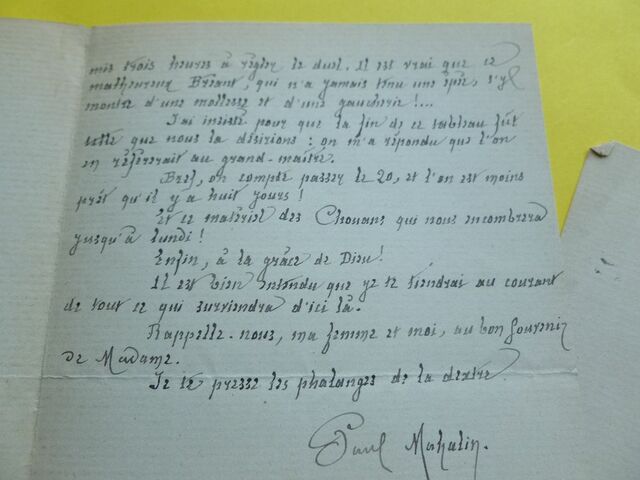 mis trois heures à régler le duel. Il est vrai que ce
malheureux Bréant, qui n'a jamais tenu une épée, s'y
montre d'une mollesse et d'une gaucherie !...
J'ai insisté pour que la fin de ce tableau fût
telle que nous la désirions : on m'a répondu que l'on
en référerait au grand-maître.
Bref, on compte passer le 20, et l'on est moins
prêt qu'il y a huit jours !
Et ce matériel des Chouans qui nous encombrera
jusqu'à lundi !
Enfin, à la grâce de Dieu !
Il est bien entendu que je te tiendrai au courant
de tout ce qui surviendra d'ici là.
Rappelle-nous, ma femme et moi, au bon souvenir
de Madame.
Je te presse les phalanges de la dextre.
Paul Mahalin.